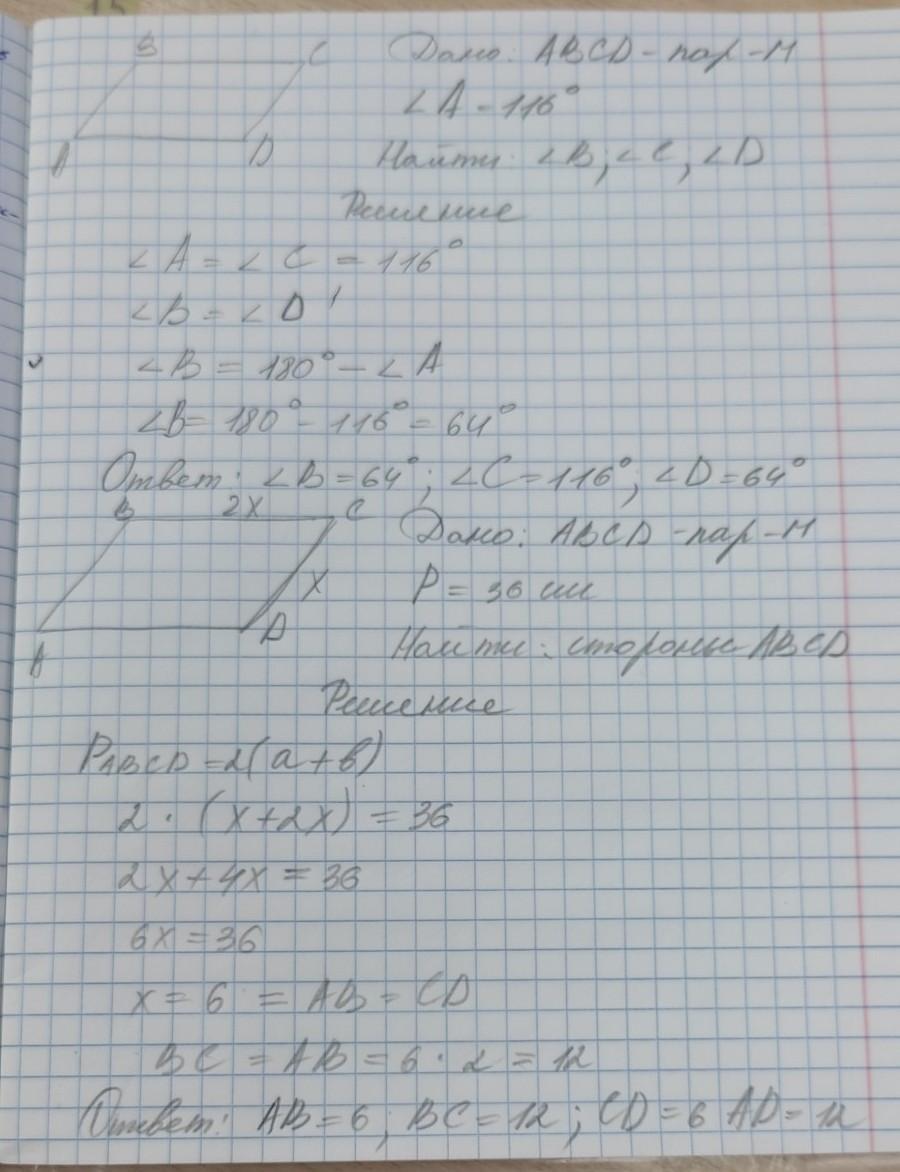 15
B C Дано: ABCD - пар-м
∠A - 116°
A D Найти: ∠B; ∠C; ∠D
Решение
∠A = ∠C = 116°
∠B = ∠D
∠B = 180° - ∠A
∠B = 180° - 116° = 64°
Ответ: ∠B = 64°; ∠C = 116°; ∠D = 64°
B 2x C Дано: ABCD - пар-м
x P = 36 см
A D Найти: стороны ABCD
Решение
PABCD = 2(a+b)
2 · (x+2x) = 36
2x+4x = 36
6x = 36
x = 6 = AB = CD
BC = AB = 6 · 2 = 12
Ответ: AB = 6; BC = 12; CD = 6 AD = 12